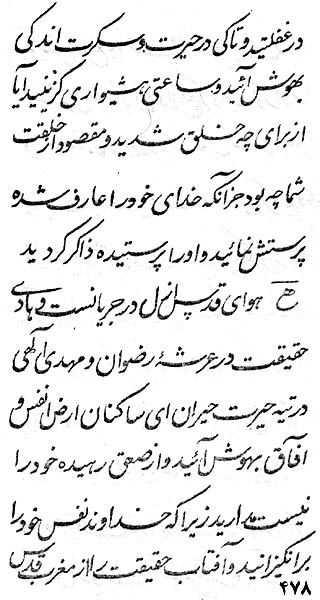 در غفلتید و تا کی در حیرت و سکرت اندکی
بهوش آئید و ساعتی هشیواری گزینید آیا
از برای چه خلق شدید و مقصود از خلقت
شما چه بود جز آنکه خدای خود را عارف شده
پرستش نمائید و او را پرستیده ذاکر گردید
هوای قدس ازل در جریانست و هادی
حقیقت در عرشهٔ رضوان و مهدی الهی
در تیه حیرت حیران ای ساکنان ارض انفس و
آفاق بهوش آئید و از صعق رهیده خود را
نیست مدارید زیرا که خداوند نفس خود را
برانگیزانید و آفتاب حقیقت را از مغرب قدس
۴۷۸